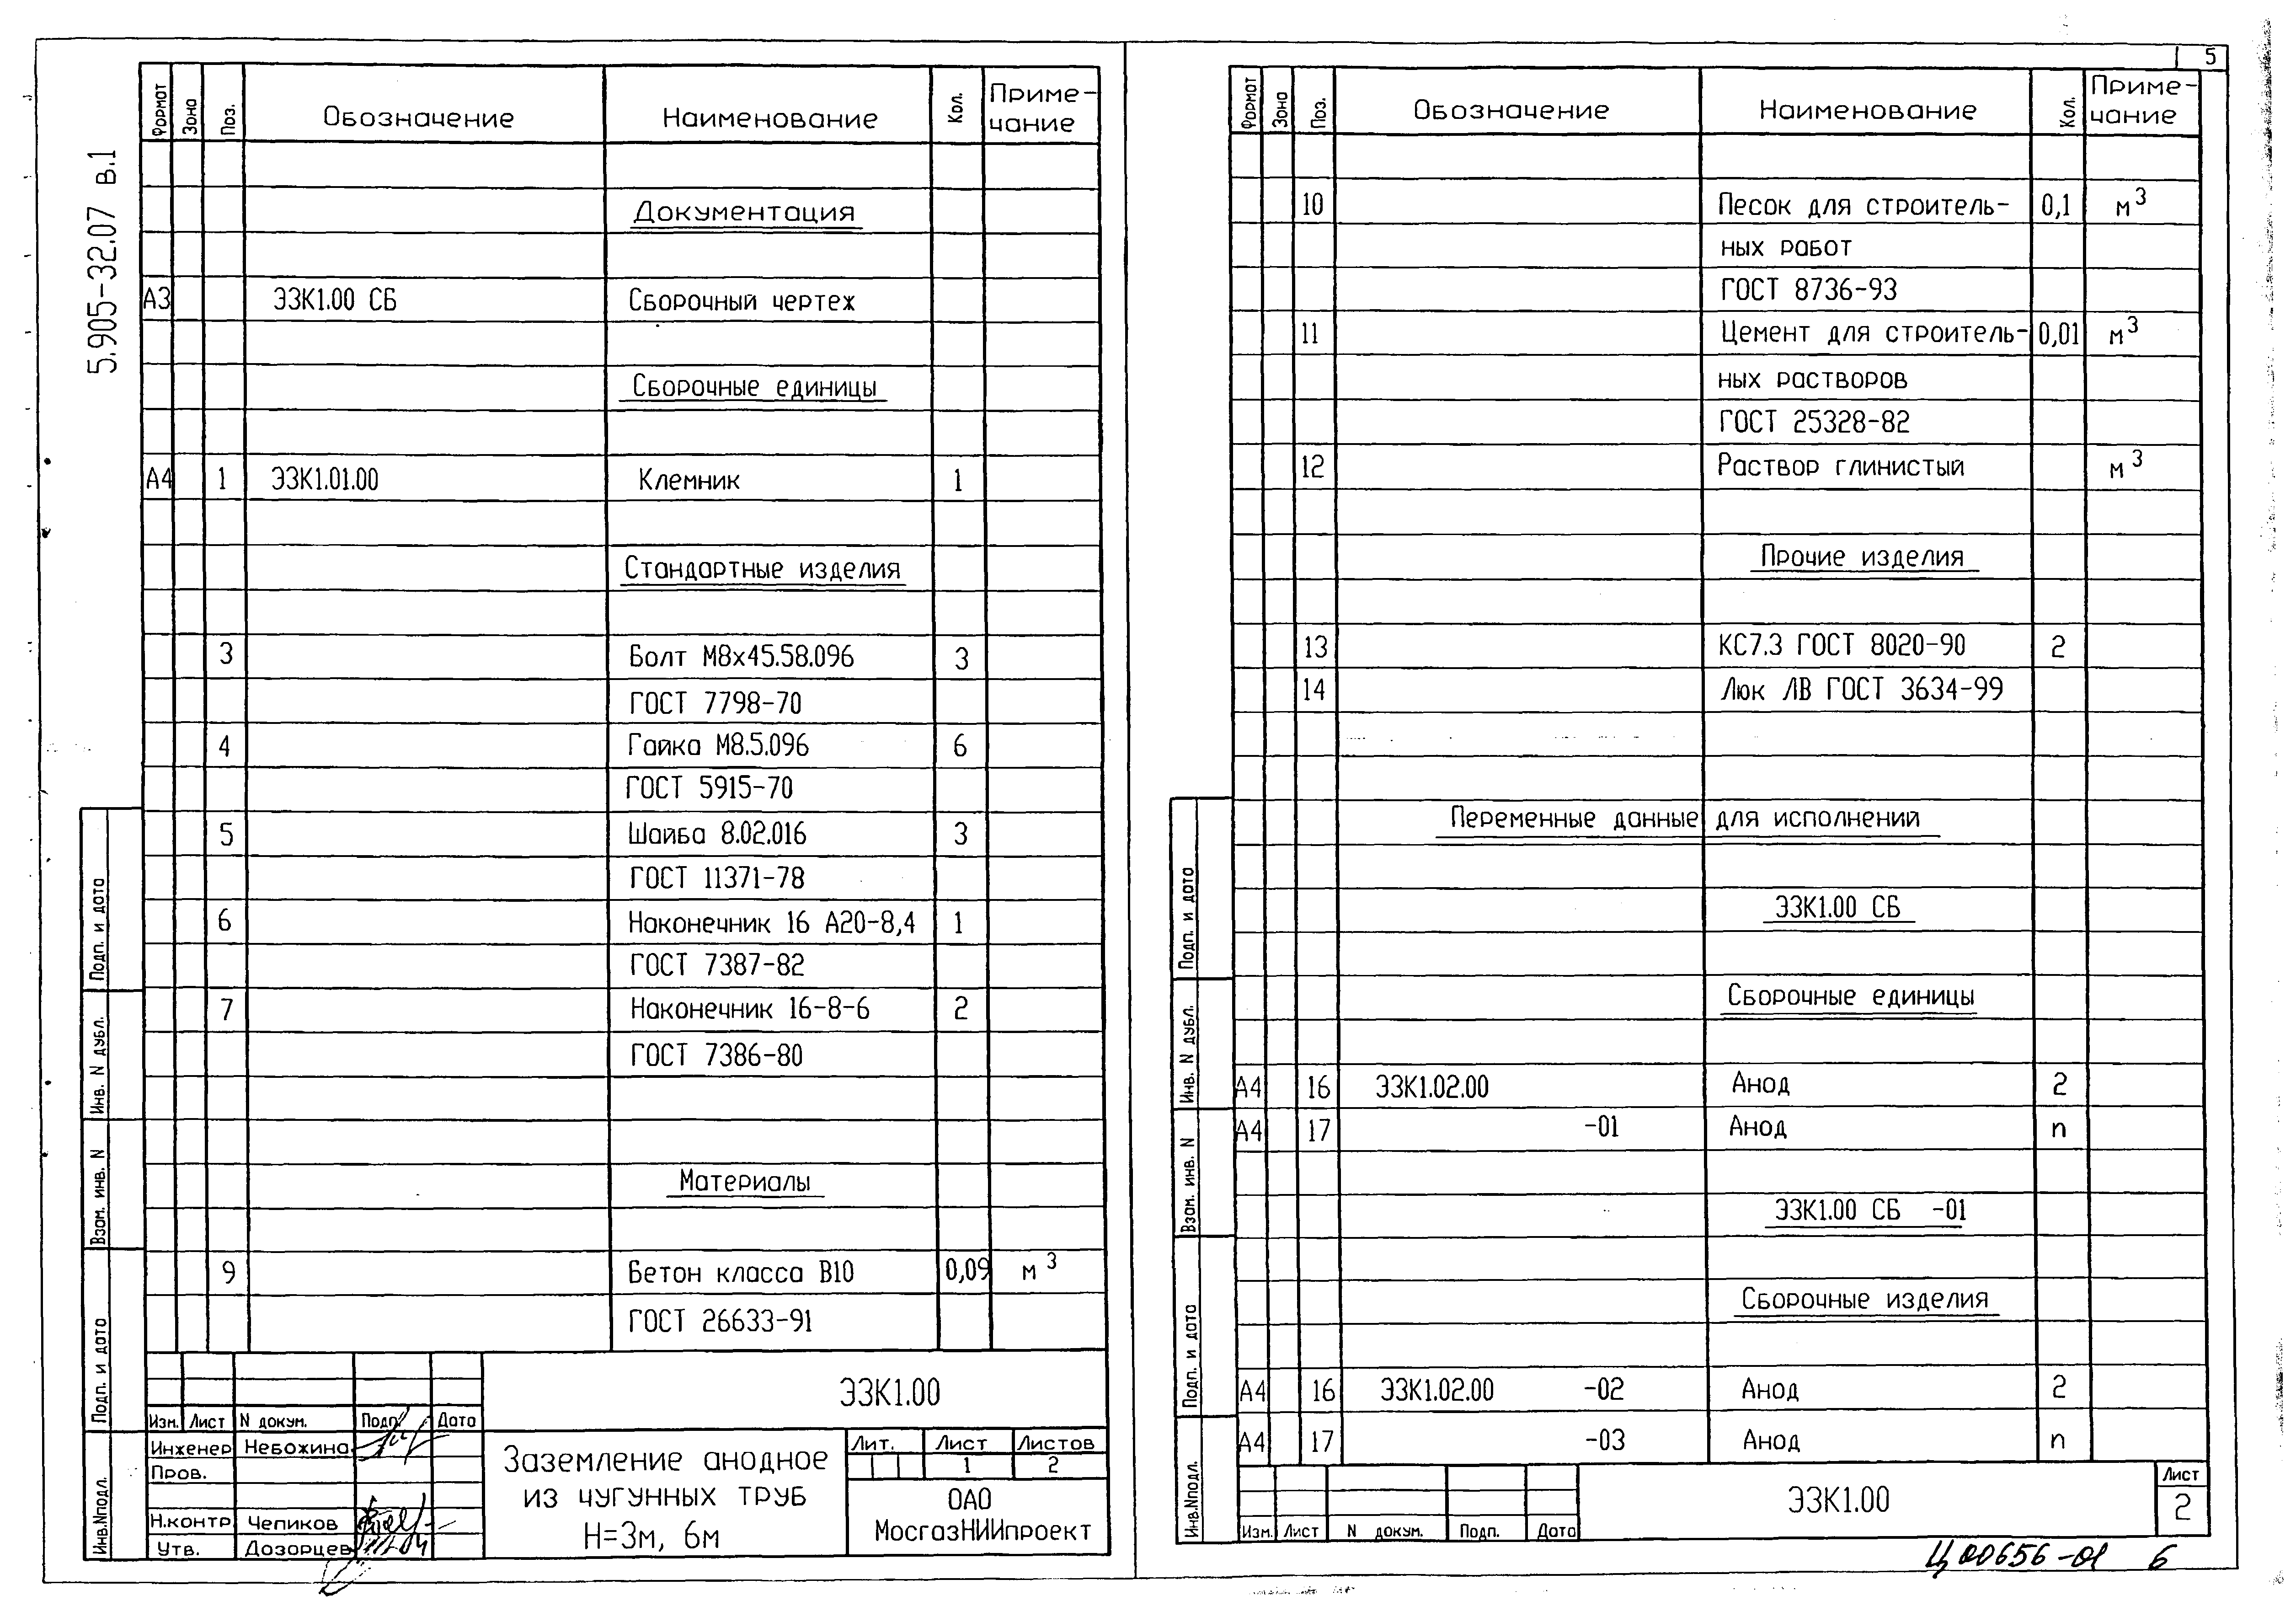 5
5.905-32.07 в.1
Формат Зона Поз. Обозначение Наименование Кол. Приме-
чание
Документация
А3 ЭЗК1.00 СБ Сборочный чертеж
Сборочные единицы
А4 1 ЭЗК1.01.00 Клемник 1
Стандартные изделия
3 Болт М8х45.58.096 3
ГОСТ 7798-70
4 Гайка М8.5.096 6
ГОСТ 5915-70
5 Шайба 8.02.016 3
ГОСТ 11371-78
6 Наконечник 16 А20-8,4 1
ГОСТ 7387-82
7 Наконечник 16-8-6 2
ГОСТ 7386-80
Материалы
9 Бетон класса В10 0,09 м3
ГОСТ 26633-91
Подп. и дата
Инв. N дубл.
Взам. инв. N
Подп. и дата
Инв.Nподл.
ЭЗК1.00
Изм. Лист N докум. Подп. Дата
Инженер Небожина
Пров.
Н.контр. Чепиков
Утв. Дозорцев
Заземление анодное
из чугунных труб
Н=3м, 6м
Лит. Лист Листов
1 2
ОАО
МосгазНИИпроект
Формат Зона Поз. Обозначение Наименование Кол. Приме-
чание
10 Песок для строитель- 0,1 м3
ных работ
ГОСТ 8736-93
11 Цемент для строитель- 0,01 м3
ных растворов
ГОСТ 25328-82
12 Раствор глинистый м3
Прочие изделия
13 КС7.3 ГОСТ 8020-90 2
14 Люк ЛВ ГОСТ 3634-99
Переменные данные для исполнений
ЭЗК1.00 СБ
Сборочные единицы
А4 16 ЭЗК1.02.00 Анод 2
А4 17 -01 Анод n
ЭЗК1.00 СБ -01
Сборочные изделия
А4 16 ЭЗК1.02.00 -02 Анод 2
А4 17 -03 Анод n
Подп. и дата
Инв. N дубл.
Взам. инв. N
Подп. и дата
Инв.Nподл.
Изм. Лист N докум. Подп. Дата
ЭЗК1.00
Лист
2
Ц00656-01 6